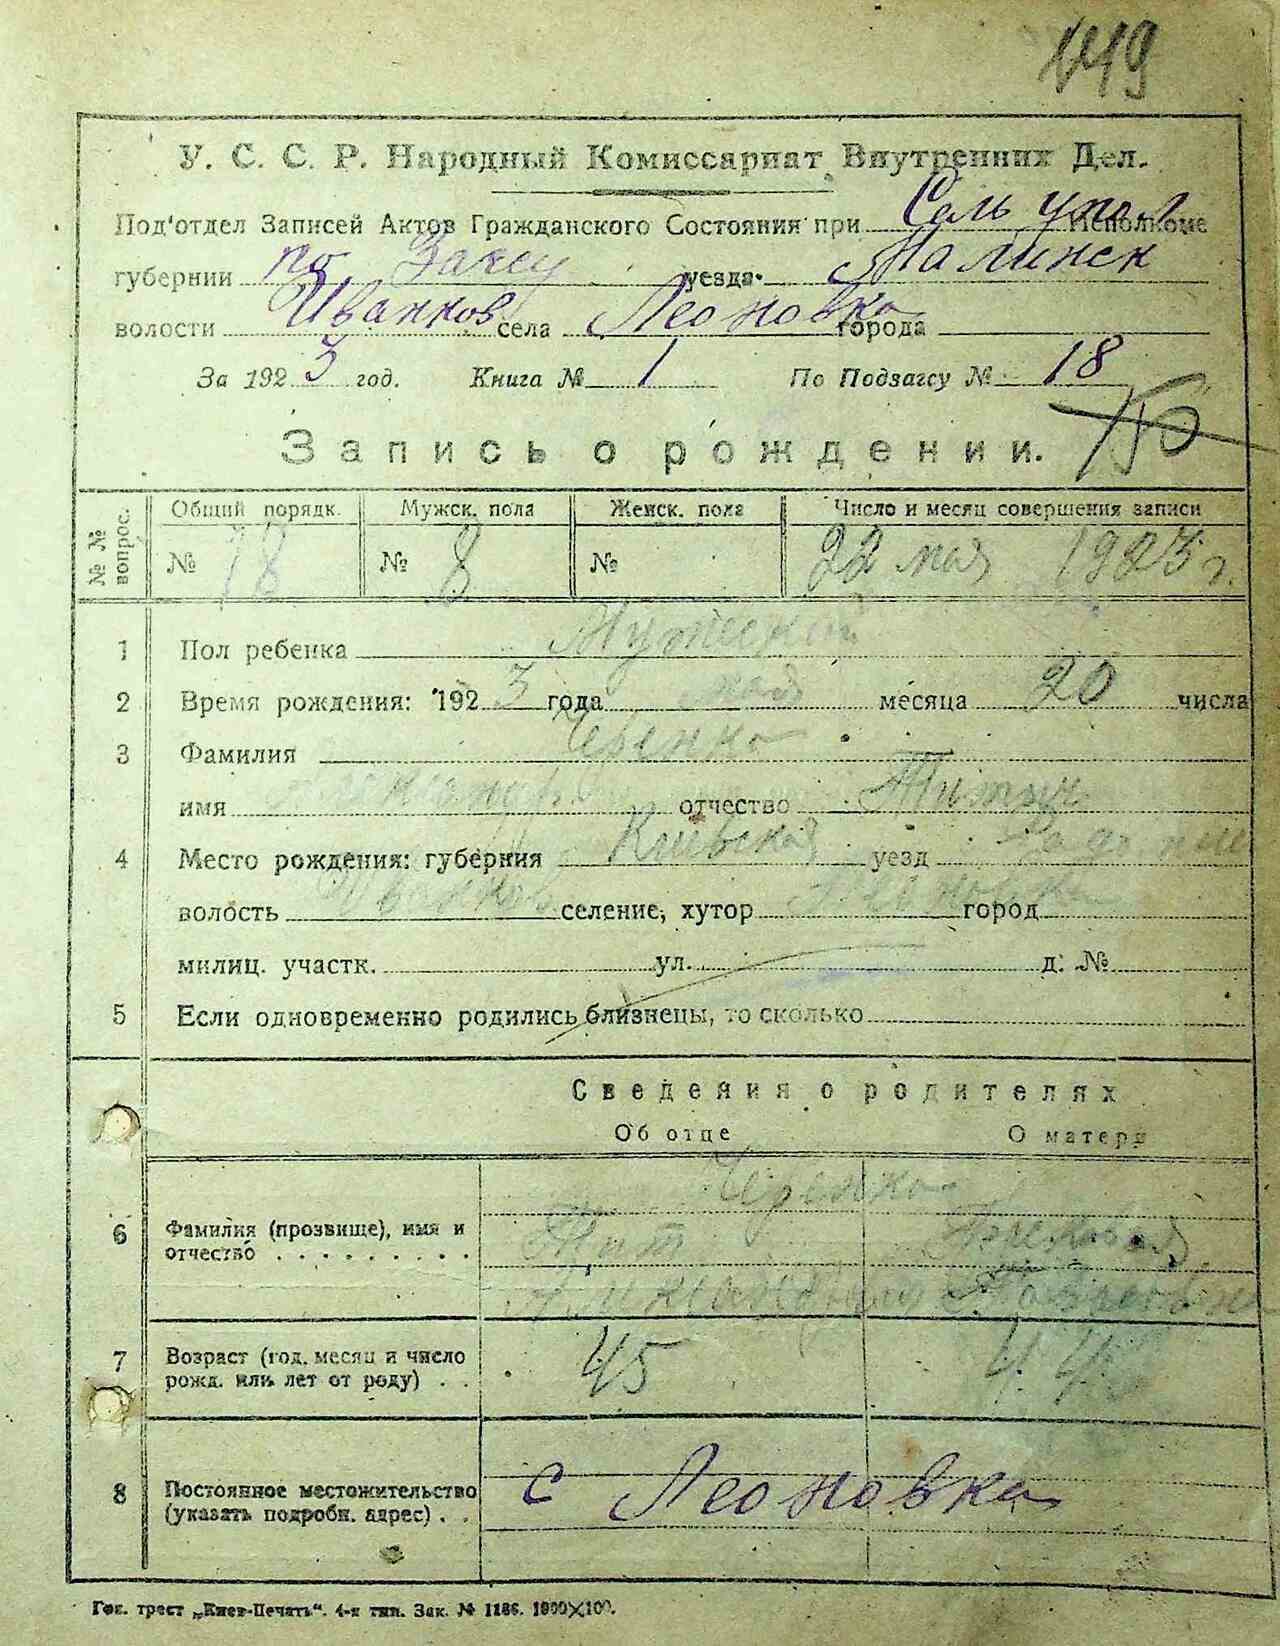 149
У. С. С. Р. Народный Комиссариат Внутренних Дел.
Под'отдел Записей Актов Гражданского Состояния при Сель упол Исполкоме
губернии по Загсу уезда Малинск
волости Иванков села Леоновка города
За 1923 год. Книга № 1 По Подзагсу № 18
Запись о рождении. 150
№ № вопрос. Общий порядк. Мужск. пола Женск. пола Число и месяц совершения записи
№ 18 № 8 № 22 мая 1923 г.
1 Пол ребенка Мужеский
2 Время рождения: 1923 года мая месяца 20 числа
3 Фамилия Черенко
имя отчество Титын
4 Место рождения: губерния Киевская уезд
волость Иванков селение, хутор Леоновка город
милиц. участк. ул. д. №
5 Если одновременно родились близнецы, то сколько
Сведения о родителях
Об отце О матери
Черенко
6 Фамилия (прозвище), имя и отчество Тит
7 Возраст (год, месяц и число рожд. или лет от роду) 45 44
8 Постоянное местожительство (указать подробн. адрес) с Леоновка
Гос. трест „Киев-Печать“. 4-я тип. Зак. № 1186. 1000×100.